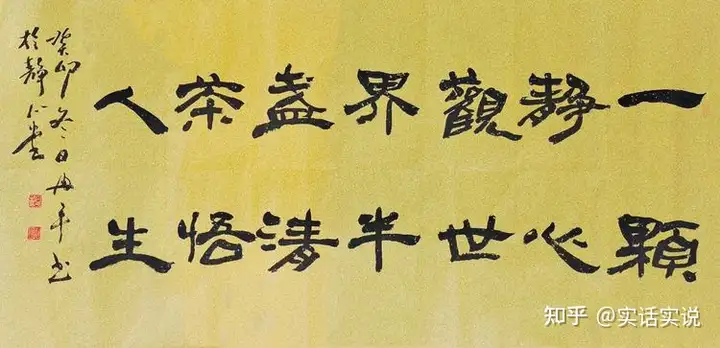 一顆
靜心
觀世
界半
盞清
茶悟
人生
癸卯冬日平书
於靜心堂
知乎 @实话实说